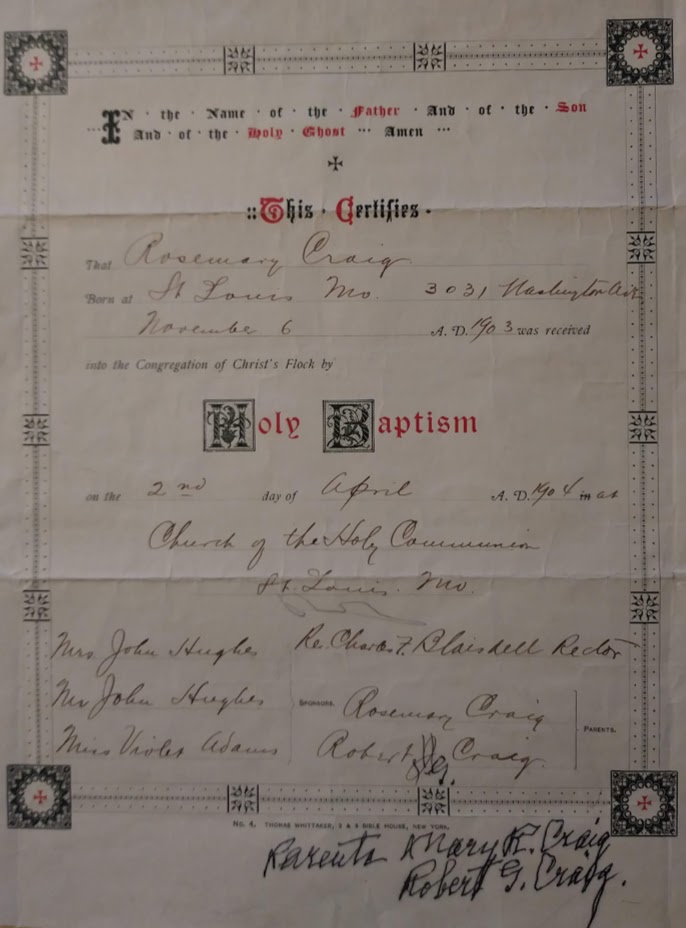 IN · the · Name · of · the · Father · And · of · the · Son
··· And · of · the · Holy · Ghost ··· Amen ···
:: This · Certifies ·
That Rosemary Craig
Born at St Louis Mo. 3031 Washington Ave
November 6 A. D. 1903 was received
into the Congregation of Christ's Flock by
Holy Baptism
on the 2nd day of April A. D. 1904 in at
Church of the Holy Communion
St. Louis. Mo.
Mrs John Hughes Rev. Charles F. Blaisdell Rector
Mr John Hughes SPONSORS. Rosemary Craig
Miss Violet Adams Robert G. Craig. PARENTS.
No. 4. THOMAS WHITTAKER, 2 & 3 BIBLE HOUSE, NEW YORK.
Parents Mary R. Craig
Robert G. Craig.